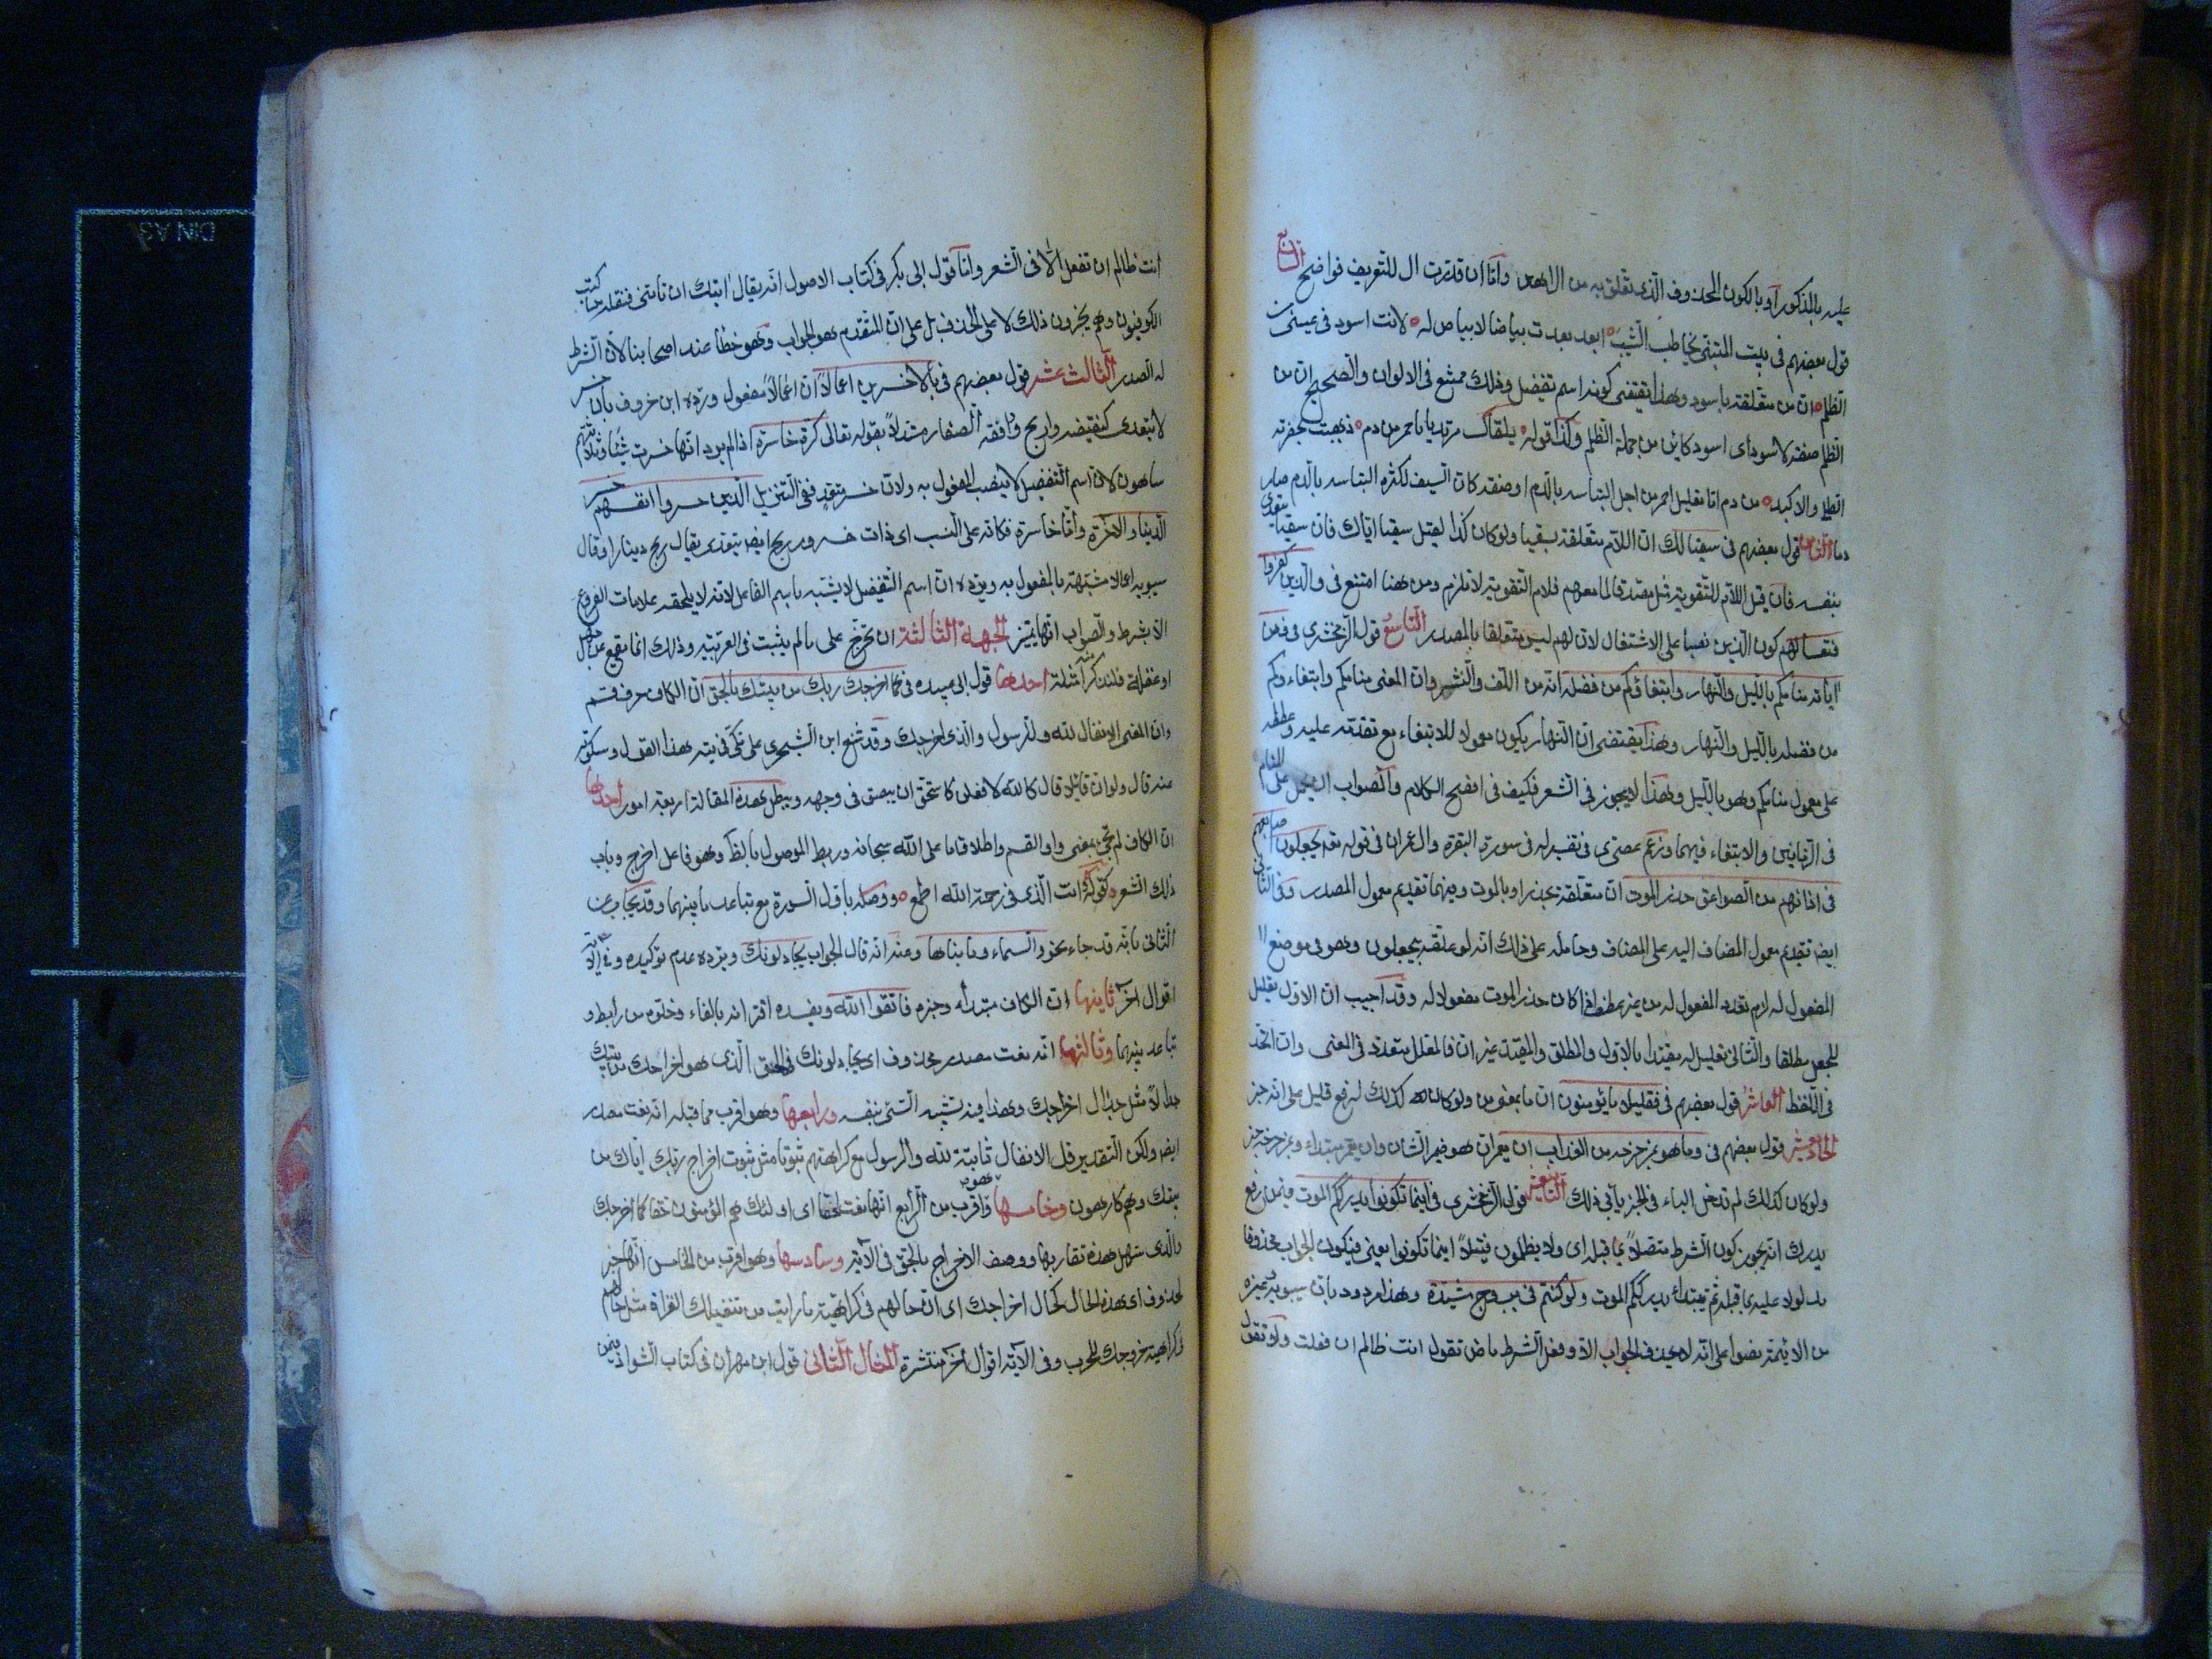 عليه بالمذكور او بالكون المحذوف الذى تعلق به من الزاهدين واما ان قدرت ال للتعريف فواضح السابع
قول بعضهم فى بيت المتنبى يخاطب الشيب ابعد بعدت بياضا لا بياض له لانت اسود فى عينى من
الظلم ان من متعلقة باسود وهذا يقتضى كونه اسم تفضيل وذلك ممتنع فى الالوان والصحيح ان من
الظلم صفة لاسود اى اسود كائن من جملة الظلم وكذا قوله يلقاك مرتديا باحمر من دم ذهبت بخضرته
الطلى والاكبد من دم اما تعليل اى احمر من اجل التباسه بالدم او صفة كان السيف لكثرة التباسه بالدم صار
دما الثامن قول بعضهم فى سقيا لك ان اللام متعلقة بسقيا ولو كان كذا لقيل سقيا اياك فان سقيا يتعدى
بنفسه فان قيل اللام للتقوية مثل مصدقا لما معهم فلام التقوية لا تلزم ومن هنا امتنع فى والذين كفروا
فتعسا لهم كون الذين نصبا على الاشتغال لان لهم ليس متعلقا بالمصدر التاسع قول الزمخشرى فى ومن
اياته منامكم بالليل والنهار وابتغاؤكم من فضله انه من اللف والنشر وان المعنى منامكم وابتغاءوكم
من فضله بالليل والنهار وهذا يقتضى ان النهار يكون معمولا للابتغاء مع تقدمه عليه وعطفه
على معمول منامكم وهو بالليل وهذا لا يجوز فى الشعر فكيف فى افصح الكلام والصواب ان يحمل على المنام
فى الزمانين والابتغاء فيهما وزعم عصرى فى تفسير له فى سورة البقرة وال عمران فى قوله تع يجعلون اصابعهم
فى اذانهم من الصواعق حذر الموت ان من متعلقة بحذر او بالموت وفيهما تقديم معمول المصدر وفى الثانى
ايض تقديم معمول المضاف اليه على المضاف وحامله على ذلك انه لو علقه بيجعلون وهو فى موضع
المفعول له لزم تعدد المفعول له من غير عطف اذا كان حذر الموت مفعولا له وقد اجيب ان الاول تعليل
للجعل مطلقا والثانى تعليل له مقيدا بالاول والمطلق والمقيد غيران فالمعلل متعدد فى المعنى وان اتحد
فى اللفظ العاشر قول بعضهم فى فقليلا ما يؤمنون ان ما بمعنى من ولو كان كذلك لرفع قليل على انه خبر
الحادى عشر قول بعضهم فى وما هو بمزحزحه من العذاب ان يعمر ان هو ضمير الشان وان يعمر مبتداء وبمزحزحه خبر
ولو كان كذلك لم تدخل الباء فى الخبر يأتى ذلك الثانى عشر قول الزمخشرى فى اينما تكونوا يدرككم الموت فيمن رفع
يدرك انه يجوز كون الشرط متصلا بما قبله اى ولا يظلمون فتيلا اينما تكونوا يعنى فيكون الجواب محذوفا
مدلولا عليه بما قبله ثم يبتداء يدرككم الموت ولو كنتم فى بروج مشيدة وهذا مردود بان سيبويه وغيره
من الائمة نصوا على انه لا يحذف الجواب الا وفعل الشرط ماض تقول انت ظالم ان فعلت ولا تقول
انت ظالم ان تفعل الا فى الشعر واما قول ابى بكر فى كتاب الاصول انه يقال اتيك ان تاتنى فنقله من كتب
الكوفيون وهم يجيزون ذلك لا على الحذف بل على ان المتقدم هو الجواب وهو خطأ عند اصحابنا لان الشرط
له الصدر الثالث عشر قول بعضهم فى بالاخسرين اعمالا ان اعمالا مفعول ورده ابن خروف بان خسر
لا يتعدى كنقيضه وارج ووافقه الصفار مستدلا بقوله تعالى كرة خاسرة اذ لم يرد انها خسرت شيئا وثلثتهم
ساهون لان اسم التفضيل لا ينصب المفعول به ولان خسر متعد ففى التنزيل الذين خسروا انفسهم خسر
الدنيا والاخرة واما خاسرة فكانه على النسب اى ذات خسر وربح ايض يتعدى يقال ربح دينارا وقال
سيبويه اعمالا مشبهة بالمفعول به ويرده ان اسم التفضيل لا يشبه باسم الفاعل لانه لا يلحقه علامات الفروع
الا بشرط والصواب انها تمييز الجهة الثالثة ان تخرج على ما لم يثبت فى العربية وذلك انما يقع عن جهل
او غفلة فلنذكر منه امثلة احدها قول ابى عبيدة فى كما اخرجك ربك من بيتك بالحق ان الكاف حرف قسم
وان المعنى الانفال لله والرسول والذى اخرجك وقد شنع ابن الشجرى على مكى فى حكايته هذا القول وسكوته
عنه قال ولو ان قائلا قال كالله لافعلن لاستحق ان يبصق فى وجهه ويبطل هذه المقالة اربعة امور احدها
ان الكاف لم تجئ بمعنى واو القسم واطلاق ما على الله سبحانه وربط الموصول بالظ وهو فاعل اخرج وباب
ذلك الشعر كقوله وانت الذى فى رحمة الله اطمع ووصله باول السورة مع تباعد ما بينهما وقد يجاب عن
الثانى بانه قد جاء نحو والسماء وما بناها وعنه انه قال الجواب يجادلونك ويرده عدم توكيده وفى الاية
اقوال اخر ثانيها ان الكاف مبتدأ وخبره فاتقوا الله ويفسده اقترانه بالفاء وخلوه من رابط و
تباعد بينهما وثالثها انه نعت مصدر محذوف اى يجادلونك فى الحق الذى هو اخراجك من بيتك
جدالا مثل جدال اخراجك وهذا فيه تشبيه الشئ بنفسه ورابعها وهو اقرب مما قبله انه نعت مصدر
ايض ولكن التقدير قل الانفال ثابتة لله والرسول مع كراهتهم ثبوتا مثل ثبوت اخراج ربك اياك من
بيتك وهم كارهون وخامسها وهو اقرب من الرابع انها نعت لحقا اى اولئك هم المؤمنون حقا كما اخرجك
والذى سهل هذه تقاربها ووصف الاخراج بالحق فى الاية وسادسها وهو اقرب من الخامس انها خبر
لمحذوف اى هذه الحال كحال اخراجك اى ان حالهم فى كراهية ما رايت من تنفيلك الغزاة مثل حالهم
فى كراهية خروجك للحرب وفى الاية اقوال اخر منتشرة المثال الثانى قول ابن مهران فى كتاب الشواذ فيمن